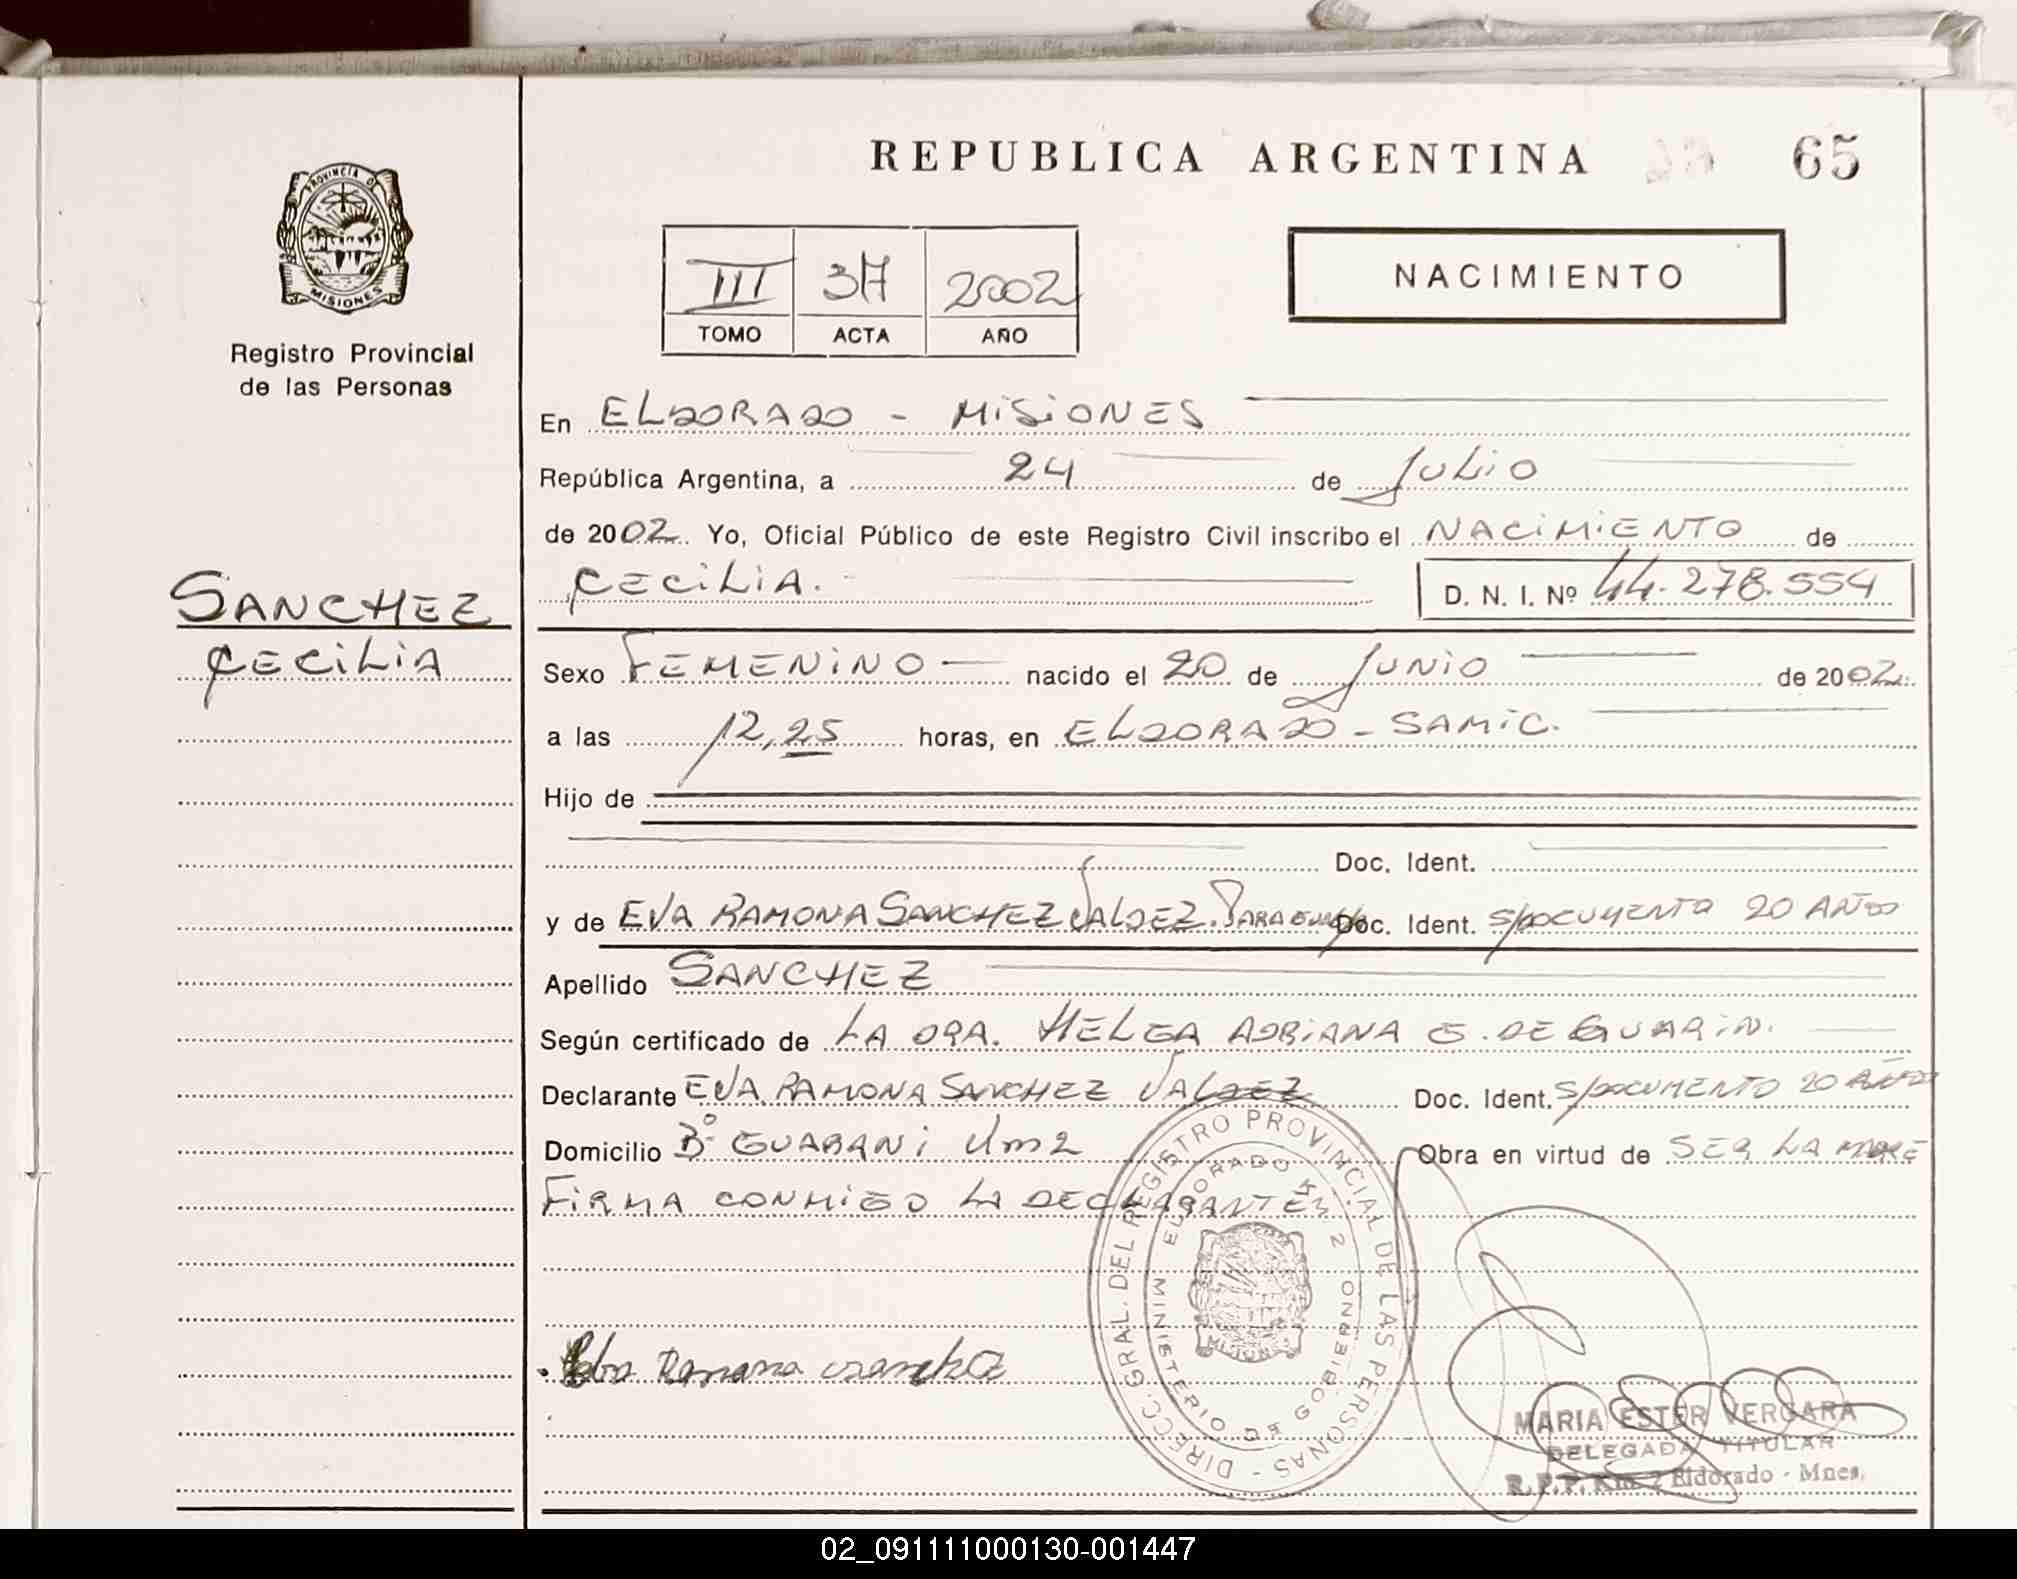 REPUBLICA ARGENTINA 65
PROVINCIA D
MISIONES
Registro Provincial
de las Personas
III 317 2002
TOMO ACTA AÑO
NACIMIENTO
En ELDORADO - MISIONES
República Argentina, a 24 de JULIO
de 2002. Yo, Oficial Público de este Registro Civil inscribo el NACIMIENTO de
CECILIA. D. N. I. Nº 44.278.554
SANCHEZ
CECILIA
Sexo FEMENINO nacido el 20 de JUNIO de 2002
a las 12,25 horas, en ELDORADO - SAMIC.
Hijo de
Doc. Ident.
y de EVA RAMONA SANCHEZ VALDEZ. PARAGUAYA Doc. Ident. S/DOCUMENTO 20 AÑOS
Apellido SANCHEZ
Según certificado de LA DRA. HELGA ADRIANA G. DE GUARIN.
Declarante EVA RAMONA SANCHEZ VALDEZ Doc. Ident. S/DOCUMENTO 20 AÑOS
Domicilio Bº GUARANI Km 2 Obra en virtud de SER LA MADRE
FIRMA CONMIGO LA DECLARANTE
DIRECC. GRAL. DEL REGISTRO PROVINCIAL DE LAS PERSONAS -
MINISTERIO DE GOBIERNO
ELDORADO KM 2
MISIONES
Ramona Sanchez
MARIA ESTER VERGARA
DELEGADA TITULAR
R.P.P. Km. 2 Eldorado - Mnes.
02_091111000130-001447